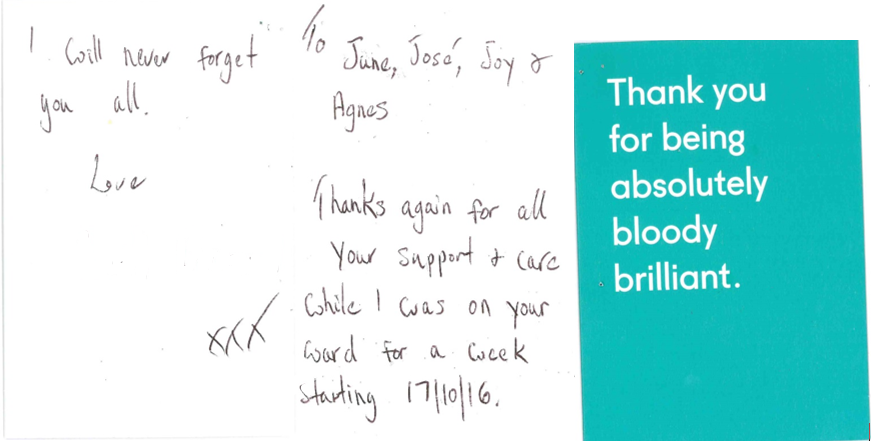 I will never forget
you all.
Love
xxx
To
June, José, Joy &
Agnes
Thanks again for all
your support & care
while I was on your
ward for a week
starting 17/10/16.
Thank you
for being
absolutely
bloody
brilliant.